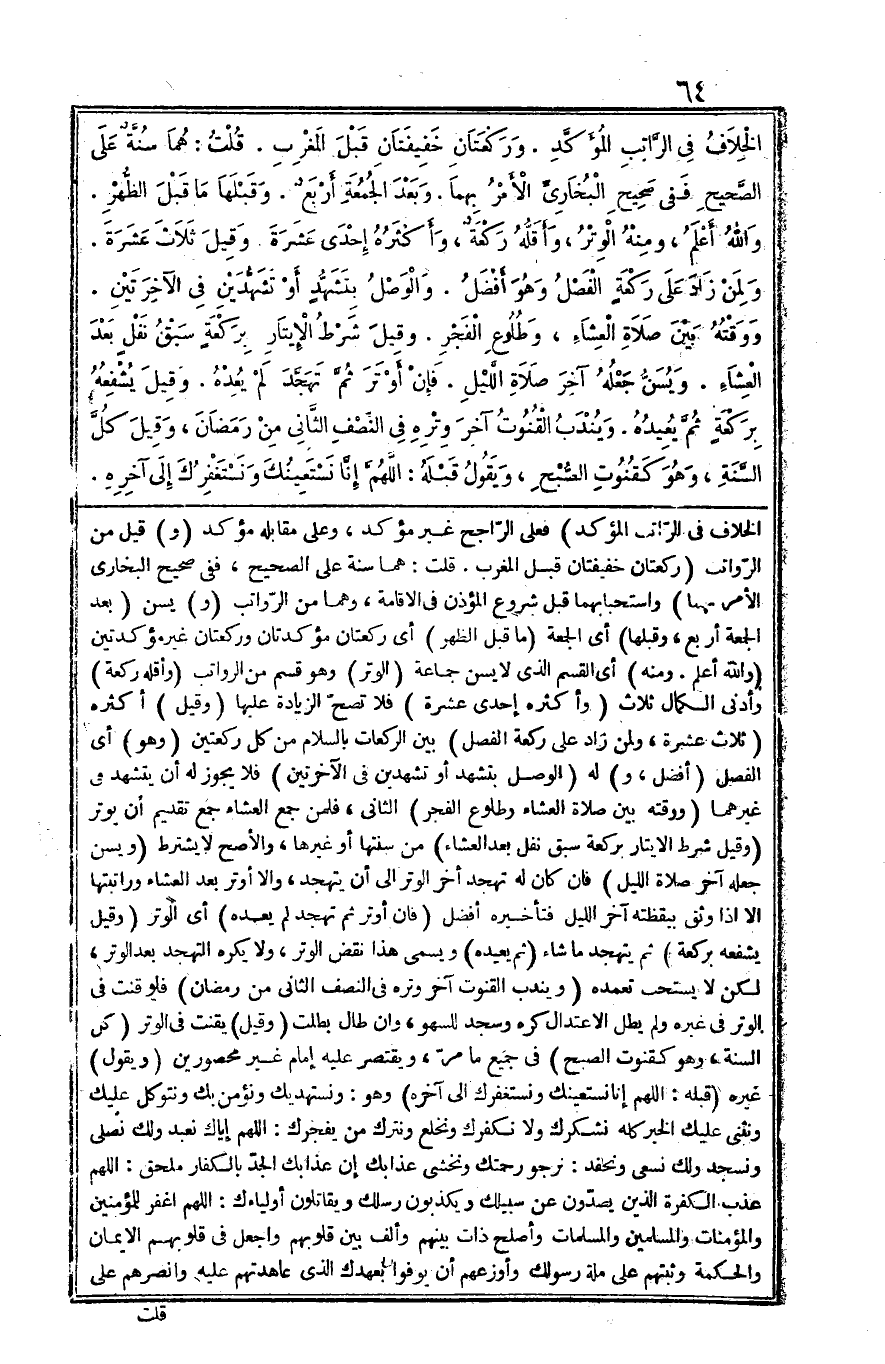 ٦٤
الْخِلَافُ فِى الرَّاتِبِ الْمُؤَكَّدِ . وَرَكْعَتَانِ خَفِيفَتَانِ قَبْلَ الْمَغْرِبِ . قُلْتُ : هُمَا سُنَّةٌ عَلَى
الصَّحِيحِ فَفِى صَحِيحِ الْبُخَارِىِّ الْأَمْرُ بِهِمَا . وَبَعْدَ الْجُمُعَةِ أَرْبَعٌ . وَقَبْلَهَا مَا قَبْلَ الظُّهْرِ .
وَاللهُ أَعْلَمُ ، وَمِنْهُ الْوِتْرُ ، وَأَقَلُّهُ رَكْعَةٌ ، وَأَكْثَرُهُ إِحْدَى عَشْرَةَ وَقِيلَ ثَلَاثَ عَشْرَةَ .
وَلِمَنْ زَادَ عَلَى رَكْعَةٍ الْفَصْلُ وَهُوَ أَفْضَلُ . وَالْوَصْلُ بِتَشَهُّدٍ أَوْ تَشَهُّدَيْنِ فِى الْآخِرَتَيْنِ .
وَوَقْتُهُ بَيْنَ صَلَاةِ الْعِشَاءِ ، وَطُلُوعِ الْفَجْرِ . وَقِيلَ شَرْطُ الْإِيتَارِ بِرَكْعَةٍ سَبْقُ نَفْلٍ بَعْدَ
الْعِشَاءِ . وَيُسَنُّ جَعْلُهُ آخِرَ صَلَاةِ اللَّيْلِ . فَإِنْ أَوْتَرَ ثُمَّ تَهَجَّدَ لَمْ يُعِدْهُ . وَقِيلَ يُشْفِعُهُ
بِرَكْعَةٍ ثُمَّ يُعِيدُهُ . وَيُنْدَبُ الْقُنُوتُ آخِرَ وِتْرِهِ فِى النِّصْفِ الثَّانِى مِنْ رَمَضَانَ ، وَقِيلَ كُلَّ
السَّنَةِ ، وَهُوَ كَقُنُوتِ الصُّبْحِ ، وَيَقُولُ قَبْلَهُ : اللَّهُمَّ إِنَّا نَسْتَعِينُكَ وَنَسْتَغْفِرُكَ إِلَى آخِرِهِ .
الخلاف فى الرّاتب المؤكد) فعلى الرّاجح غير مؤكد ، وعلى مقابله مؤكد (و) قيل من
الرّواتب (ركعتان خفيفتان قبل المغرب . قلت : هما سنة على الصحيح ، ففى صحيح البخارى
الأمر بهما) واستحبابهما قبل شروع المؤذن فى الاقامة ، وهما من الرّواتب (و) يسن (بعد
الجمعة أربع ، وقبلها) أى الجمعة (ما قبل الظهر) أى ركعتان مؤكدتان وركعتان غير مؤكدتين
(والله أعلم . ومنه) أى القسم الذى لايسن جماعة (الوتر) وهو قسم من الرواتب (وأقله ركعة)
وأدنى الكمال ثلاث (وأكثره إحدى عشرة) فلا تصحّ الزيادة عليها (وقيل) أكثره
(ثلاث عشرة ، ولمن زاد على ركعة الفصل) بين الركعات بالسلام من كل ركعتين (وهو) أى
الفصل (أفضل ، و) له (الوصل بتشهد أو تشهدين فى الآخرتين) فلا يجوز له أن يتشهد فى
غيرهما (ووقته بين صلاة العشاء وطلوع الفجر) الثانى ، فلمن جمع العشاء جمع تقديم أن يوتر
(وقيل شرط الايتار بركعة سبق نفل بعد العشاء) من سنتها أو غيرها ، والأصح لايشترط (ويسن
جعله آخر صلاة الليل) فان كان له تهجد أخر الوتر الى أن يتهجد ، والا أوتر بعد العشاء وراتبتها
الا اذا وثق بيقظته آخر الليل فتأخيره أفضل (فان أوتر ثم تهجد لم يعده) أى الوتر (وقيل
يشفعه بركعة) ثم يتهجد ماشاء (ثم يعيده) ويسمى هذا نقض الوتر ، ولا يكره التهجد بعد الوتر ،
لكن لا يستحب تعمده (ويندب القنوت آخر وتره فى النصف الثانى من رمضان) فلو قنت فى
الوتر فى غيره ولم يطل الاعتدال كره وسجد للسهو ، وان طال بطلت (وقيل) يقنت فى الوتر (كل
السنة ، وهو كقنوت الصبح) فى جميع ما مرّ ، ويقتصر عليه إمام غير محصورين (ويقول)
غيره (قبله : اللهم إنا نستعينك ونستغفرك الى آخره) وهو : ونستهديك ونؤمن بك ونتوكل عليك
ونثنى عليك الخير كله نشكرك ولا نكفرك ونخلع ونترك من يفجرك : اللهم إياك نعبد ولك نصلى
ونسجد ولك نسعى ونحفد : نرجو رحمتك ونخشى عذابك إن عذابك الجدّ بالكفار ملحق : اللهم
عذب الكفرة الذين يصدّون عن سبيلك ويكذبون رسلك ويقاتلون أولياءك : اللهم اغفر للمؤمنين
والمؤمنات والمسلمين والمسلمات وأصلح ذات بينهم وألف بين قلوبهم واجعل فى قلوبهم الايمان
والحكمة وثبتهم على ملة رسولك وأوزعهم أن يوفوا بعهدك الذى عاهدتهم عليه وانصرهم على
قلت